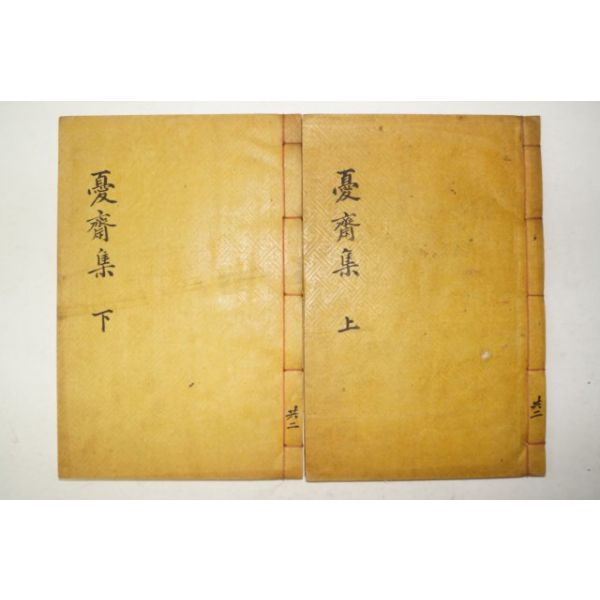 憂齋集 上
共二
憂齋集 下
共二